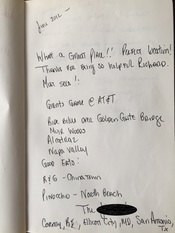 June 2012 -
What a Great Place!! Perfect location!
Thank you for being so helpful Richard.
Giants Game @ AT&T
Bike Ride over Golden Gate Bridge
Muir Woods
Alcatraz
Napa Valley
Good Eats:
R&G - Chinatown
Pinocchio - North Beach
The
Conway, Ellicott City, MD, San Antonio, TX